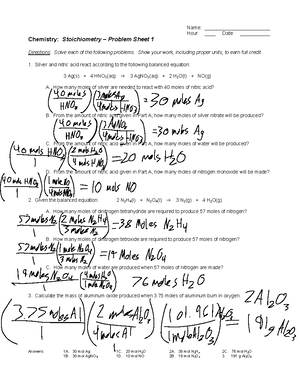 Name
Hour: Date
Chemistry: Stoichiometry – Problem Sheet 1
Directions: Solve each of the following problems. Show your work, including proper units, to earn full credit.
1. Silver and nitric acid react according to the following balanced equation:
3 Ag(s) + 4 HNO₃(aq) → 3 AgNO₃(aq) + 2 H₂O(l) + NO(g)
A. How many moles of silver are needed to react with 40 moles of nitric acid?
(40 moles HNO₃ / 1) (3 moles Ag / 4 moles HNO₃) = 30 mols Ag
B. From the amount of nitric acid given in Part A, how many moles of silver nitrate will be produced?
(40 mols HNO₃ / 1) = 30 mols Ag
C. From the amount of nitric acid given in Part A, how many moles of water will be produced?
= 20 mols H₂O
D. From the amount of nitric acid given in Part A, how many moles of nitrogen monoxide will be made?
= 10 mols NO
2. Given the balanced equation: 2 N₂H₄(l) + N₂O₄(l) → 3 N₂(g) + 4 H₂O(g)
A. How many moles of dinitrogen tetrahydride are required to produce 57 moles of nitrogen?
= 38 Moles N₂H₄
B. How many moles of dinitrogen tetroxide are required to produce 57 moles of nitrogen?
= 19 Moles N₂O₄
C. How many moles of water are produced when 57 moles of nitrogen are made?
76 moles H₂O
3. Calculate the mass of aluminum oxide produced when 3.75 moles of aluminum burn in oxygen.
(3.75 moles Al / 1) (2 moles Al₂O₃ / 4 moles Al) (101.961 Al₂O₃ / 1 mol Al₂O₃)
2Al₂O₃
191 g Al₂O₃
Answers: 1A. 30 mol Ag 1C. 20 mol H₂O 2A. 38 mol N₂H₄ 2C. 76 mol H₂O
1B. 30 mol AgNO₃ 1D. 10 mol NO 2B. 19 mol N₂O₄ 3. 191 g Al₂O₃